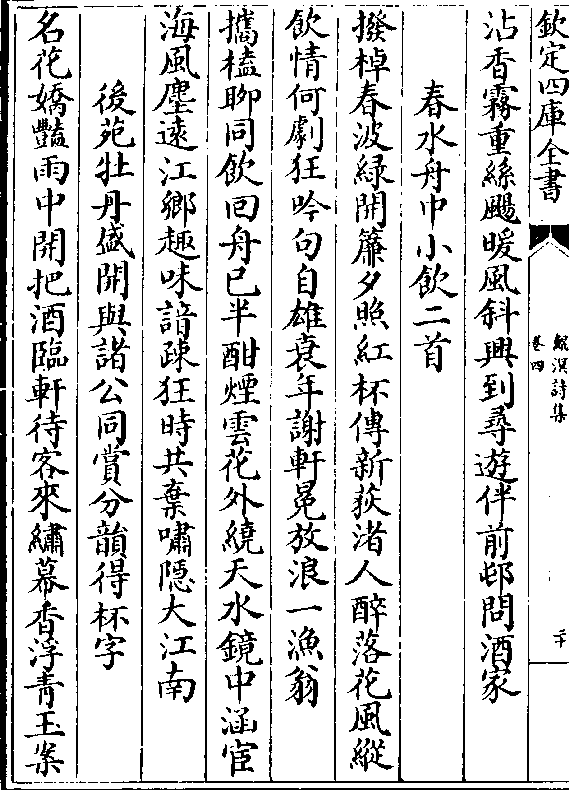 欽定四庫全書
鯤溟詩集
卷四
二十
沾香霧重絲颺暖風斜興到尋遊伴前邨問酒家
春水舟中小飲二首
撥棹春波緑開簾夕照紅杯傳新荻渚人醉落花風縱
飲情何劇狂吟句自雄衰年謝軒冕放浪一漁翁
攜榼聊同飲回舟已半酣煙雲花外繞天水鏡中涵宦
海風塵遠江鄉趣味諳疎狂時共棄嘯隠大江南
後苑牡丹盛開與諸公同賞分韻得杯字
名花嬌豔雨中開把酒臨軒待客來繡幕香浮青玉案